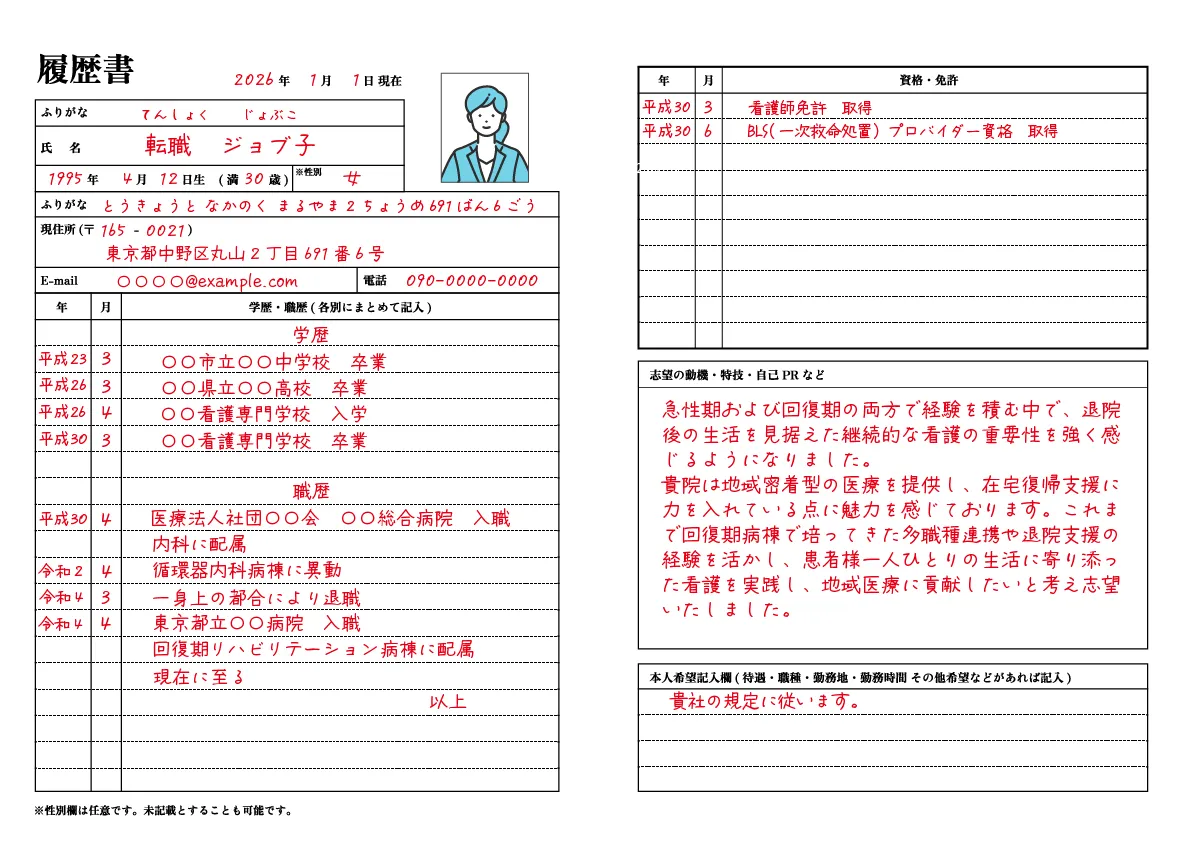 履歴書
2026年 1月 1日現在
ふりがな てんしょく じょぶこ
氏 名 転職 ジョブ子
1995年 4月 12日生 (満30歳) ※性別 女
ふりがな とうきょうと なかのく まるやま2ちょうめ691ばん6ごう
現住所(〒165-0021)
東京都中野区丸山2丁目691番6号
E-mail 〇〇〇〇@example.com 電話 090-0000-0000
年 月 学歴・職歴(各別にまとめて記入)
学歴
平成23 3 〇〇市立〇〇中学校 卒業
平成26 3 〇〇県立〇〇高校 卒業
平成26 4 〇〇看護専門学校 入学
平成30 3 〇〇看護専門学校 卒業
職歴
平成30 4 医療法人社団〇〇会 〇〇総合病院 入職
内科に配属
令和2 4 循環器内科病棟に異動
令和4 3 一身上の都合により退職
令和4 4 東京都立〇〇病院 入職
回復期リハビリテーション病棟に配属
現在に至る
以上
※性別欄は任意です。未記載とすることも可能です。
年 月 資格・免許
平成30 3 看護師免許 取得
平成30 6 BLS(一次救命処置)プロバイダー資格 取得
志望の動機・特技・自己PRなど
急性期および回復期の両方で経験を積む中で、退院
後の生活を見据えた継続的な看護の重要性を強く感
じるようになりました。
貴院は地域密着型の医療を提供し、在宅復帰支援に
力を入れている点に魅力を感じております。これま
で回復期病棟で培ってきた多職種連携や退院支援の
経験を活かし、患者様一人ひとりの生活に寄り添っ
た看護を実践し、地域医療に貢献したいと考え志望
いたしました。
本人希望記入欄(待遇・職種・勤務地・勤務時間 その他希望などがあれば記入)
貴社の規定に従います。